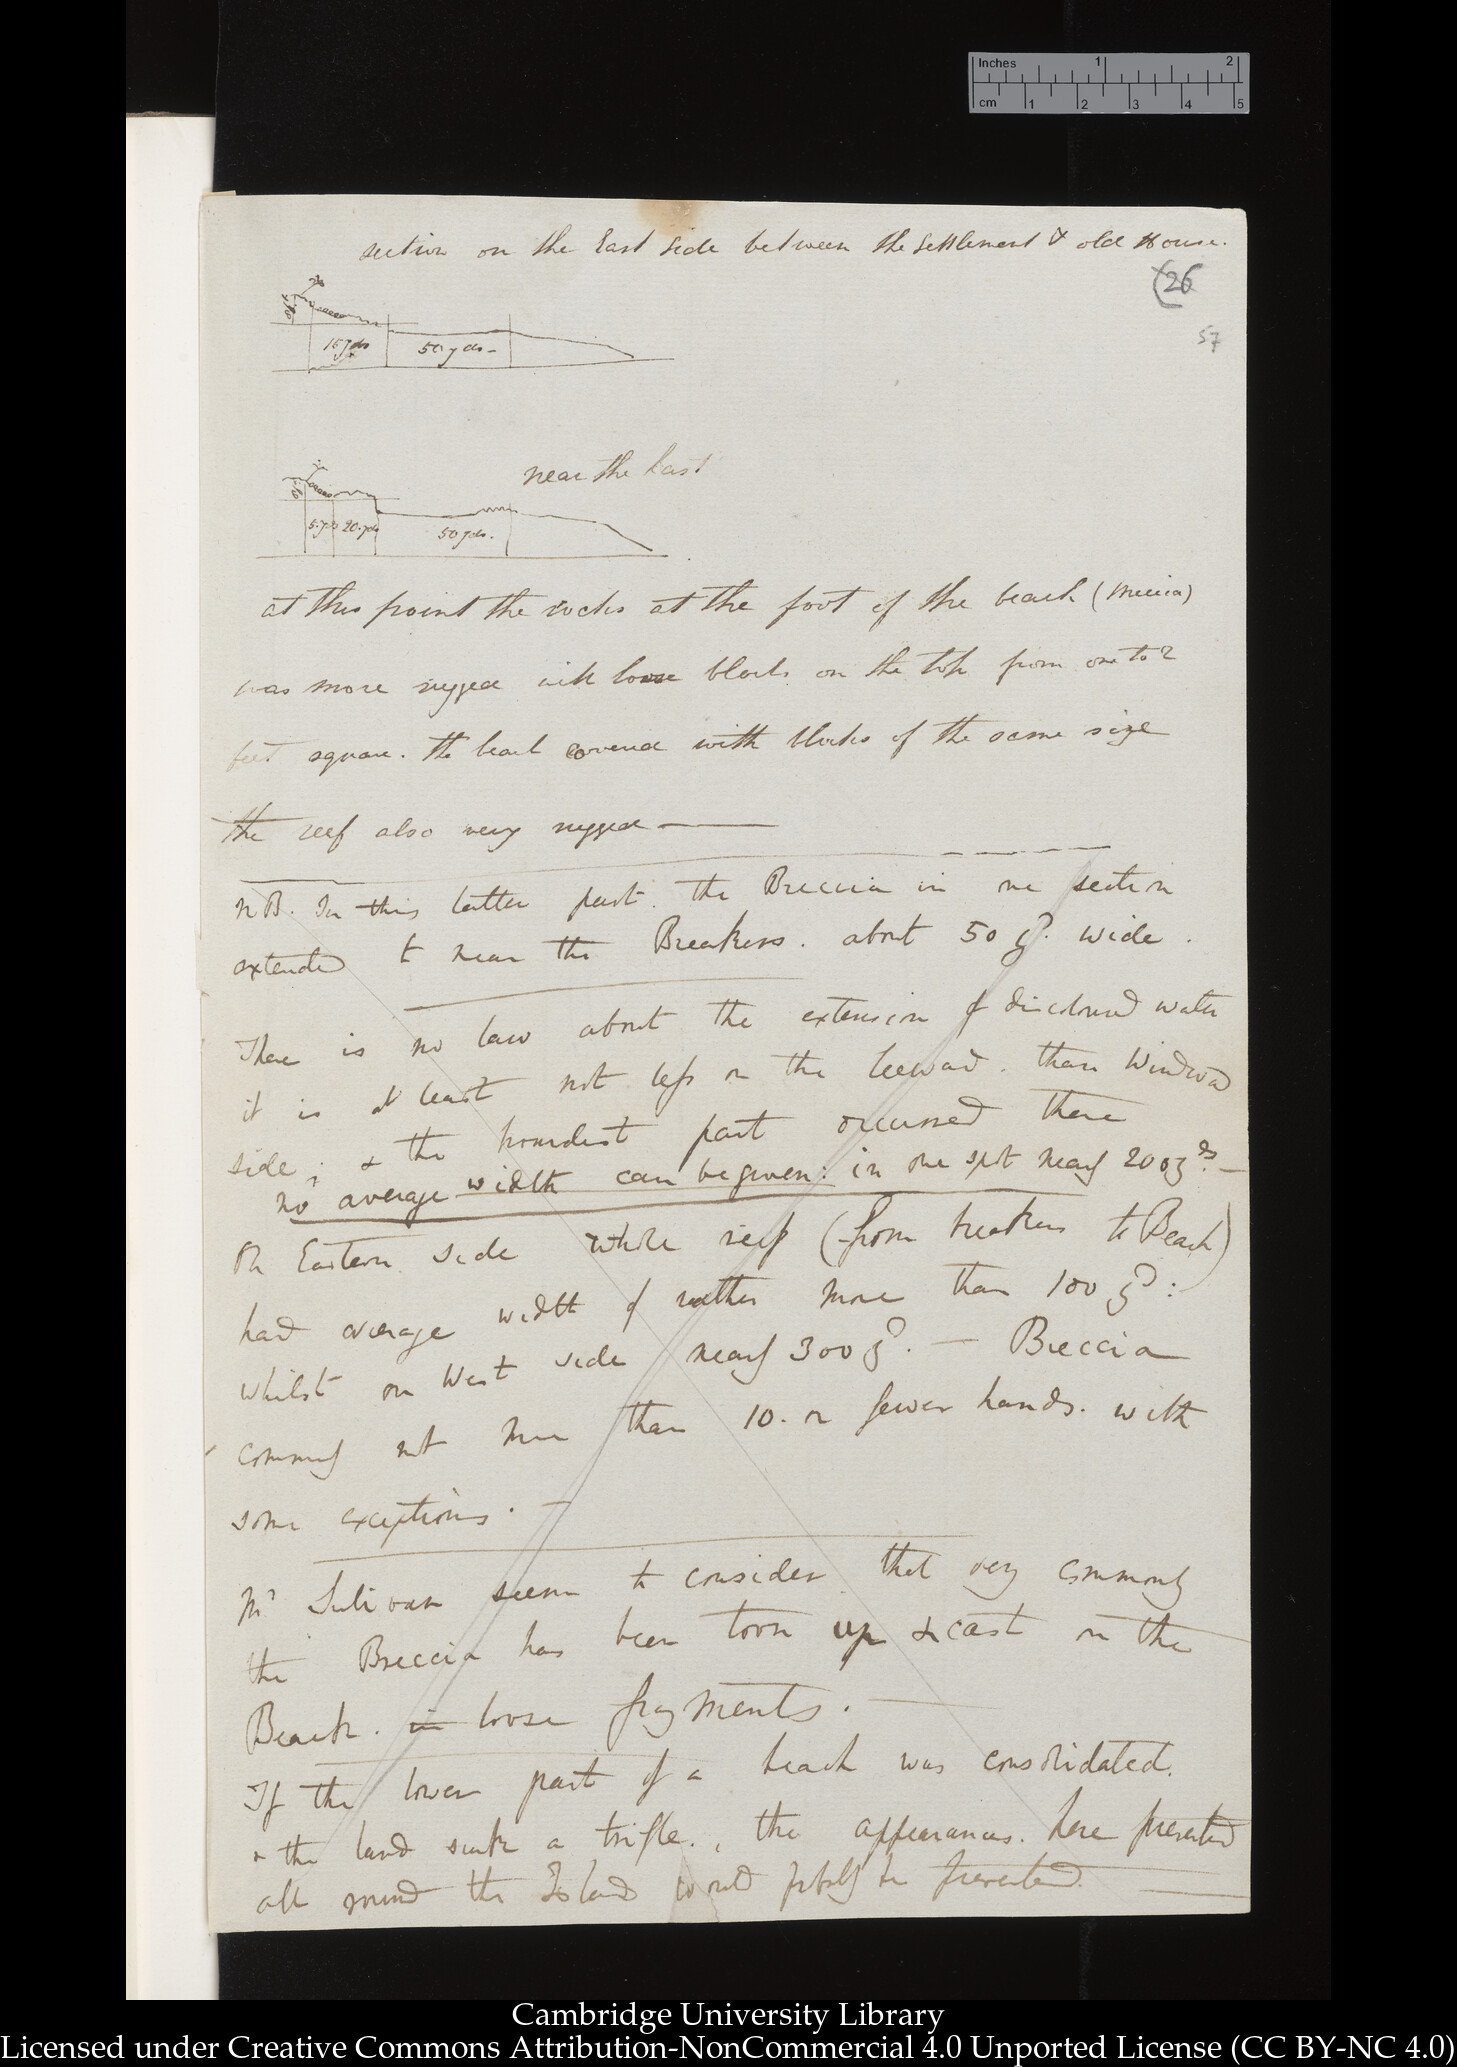 Inches 1 2
cm 1 2 3 4 5
section on the East side between the Settlement & old House.
(26
57
15 yds 50 yds -
near the last
5 yds 20 yds 50 yds.
at this point the rocks at the foot of the beach (Breccia)
was more rugged with loose blocks on the top from one to 2
feet square. the beach covered with blocks of the same size
the reef also very rugged —
NB. In this latter part. the Breccia in one section
extended to near the Breakers. about 50 yd. wide.
There is no law about the extension of discoloured water
it is at least not less on the leeward. than Windward
side; & the broadest part occurred there
no average width can be given: in one spot nearly 200 yds. —
On Eastern side whole reef (from breakers to Beach)
had average width of rather more than 100 yd:
whilst on West side nearly 300 yd. — Breccia
commonly not more than 10. or fewer hands. with
some exceptions. —
Mr Sulivan seems to consider that very commonly
the Breccia has been torn up & cast on the
Beach. in loose fragments. —
If the lower part of a beach was consolidated.
& the land sunk a trifle., the appearances. here presented
all round the Island would probably be presented.
Cambridge University Library
Licensed under Creative Commons Attribution-NonCommercial 4.0 Unported License (CC BY-NC 4.0)